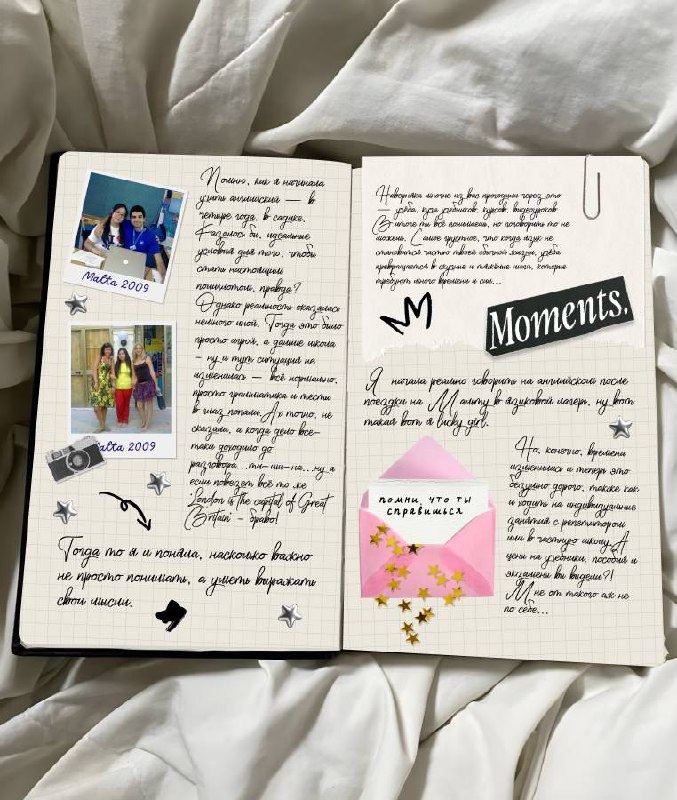 Помню, как я начинала
учить английский — в
четыре года, в садике.
Казалось бы, идеальные
условия для того, чтобы
стать настоящим
полиглотом, правда?
Однако реальность оказалась
немного иной. Тогда это было
просто игрой, а дальше школа
- ну и тут ситуация не
изменилась — всё нормально,
просто грамматика и тесты
в глаз попали. А точно, не
сказала, а когда дело всё-
таки доходило до
разговора ...ти-ши-на... ну а
если повезет всё то же
"London is the capital of Great
Britain" - браво!
Malta 2009
Malta 2009
Тогда то я и поняла, насколько важно
не просто понимать, а уметь выражать
свои мысли.
Наверняка многие из вас проходили через это
— учёба, куча учебников, курсов, видеоуроков
В итоге ты всё понимаешь, но поговорить то не
можешь. Самое грустное, что когда язык не
становится частью твоей обычной жизни, учёба
превращается в скучный и тяжелый, которые
требуют много времени и сил...
Moments,
Я начала реально говорить на английском после
поездки на Мальту в языковой лагерь, ну вот
такая вот я lucky girl.
Но, конечно, времена
изменились и теперь это
безумно дорого, также как
и ходить на индивидуальные
занятия с репетитором
или в частную школу. А
цены на учебники, пособия и
экзамены вы видели?!
Мне от такого аж не
по себе...
помни, что ты
справишься